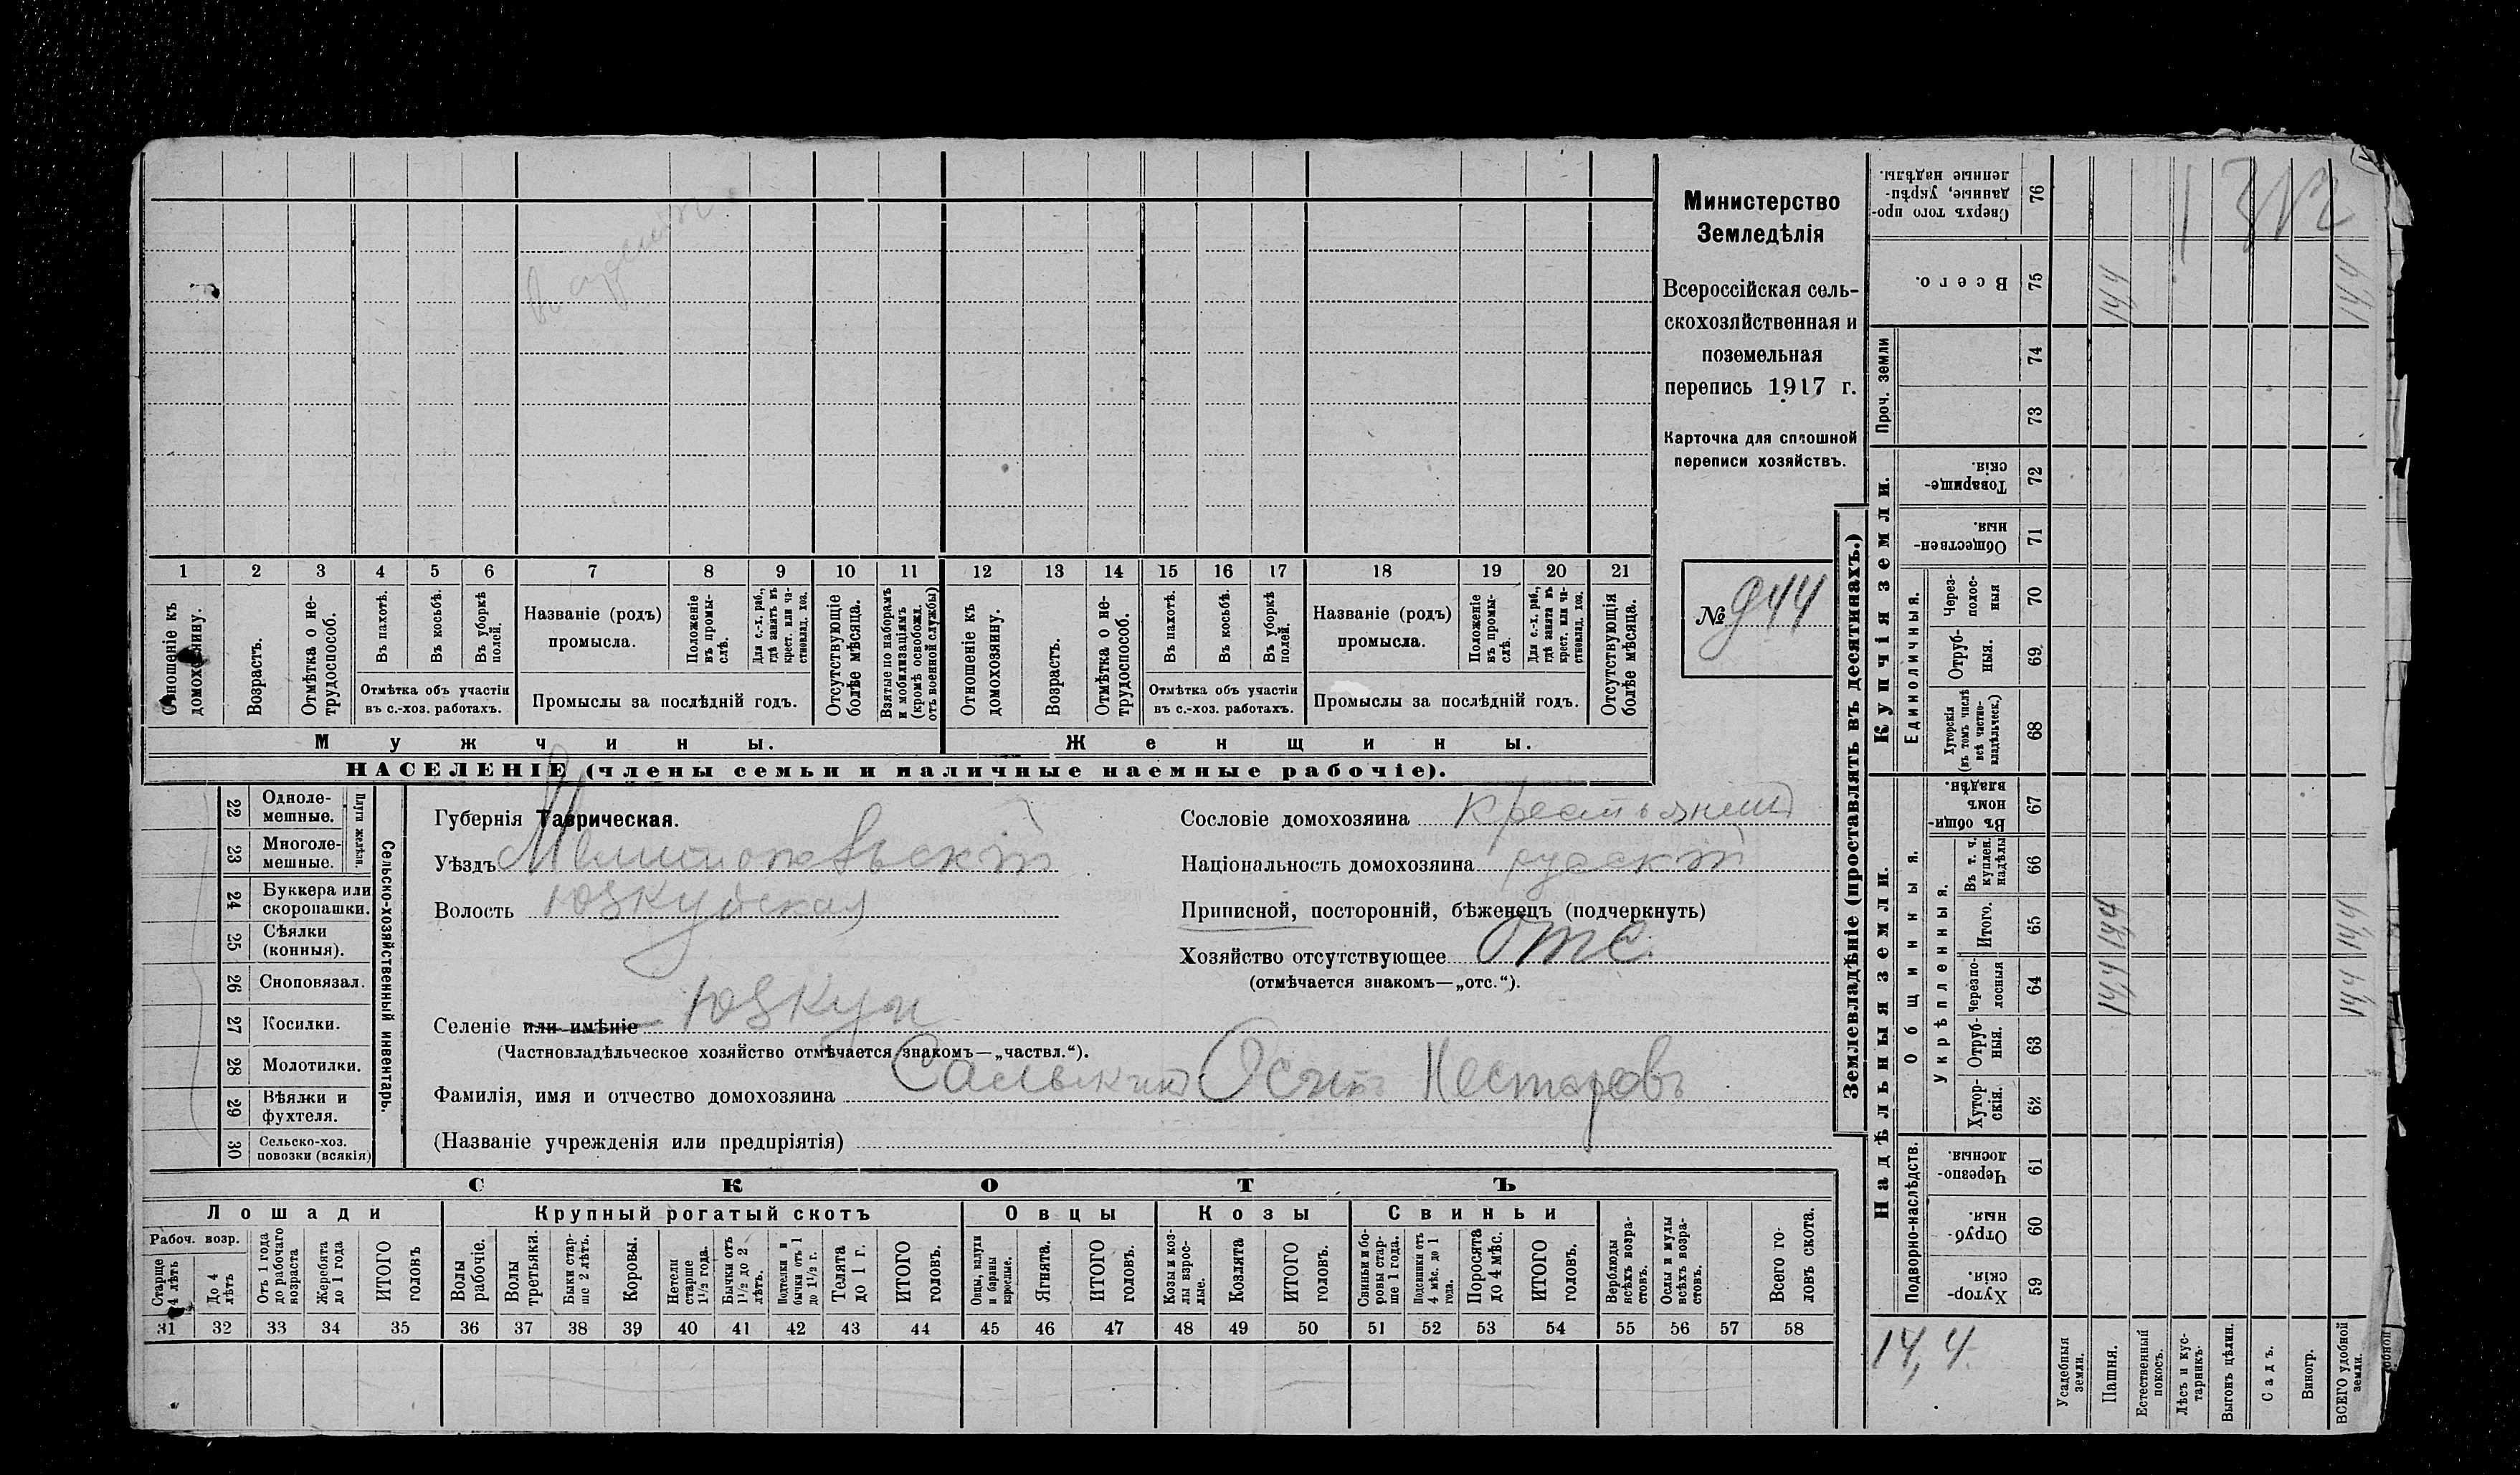 Министерство
Земледѣлія
Всероссійская сель-
скохозяйственная и
поземельная
перепись 1917 г.
Карточка для сплошной
переписи хозяйствъ.
№ 944
1 2 3 4 5 6 7 8 9 10 11 12 13 14 15 16 17 18 19 20 21
Отношеніе къ домохозяину.
Возрастъ.
Отмѣтка о не-трудоспособ.
Въ пахотѣ.
Въ косьбѣ.
Въ уборкѣ полей.
Отмѣтка объ участіи
въ с.-хоз. работахъ.
Названіе (родъ)
промысла.
Положеніе въ промы-слѣ.
Для с.-х. раб., гдѣ занятъ въ крест. или ча-стновлад. хоз.
Промыслы за послѣдній годъ.
Отсутствующіе болѣе мѣсяца.
Взятые по наборамъ и мобилизаціямъ (кромѣ освобожд. отъ военной службы)
Отношеніе къ домохозяину.
Возрастъ.
Отмѣтка о не-трудоспособ.
Въ пахотѣ.
Въ косьбѣ.
Въ уборкѣ полей.
Отмѣтка объ участіи
въ с.-хоз. работахъ.
Названіе (родъ)
промысла.
Положеніе въ промы-слѣ.
Для с.-х. раб., гдѣ занята въ крест. или ча-стновлад. хоз.
Промыслы за послѣдній годъ.
Отсутствующія болѣе мѣсяца.
Мужчины.
Женщины.
НАСЕЛЕНІЕ (члены семьи и наличные наемные рабочіе).
Сельско-хозяйственный инвентарь.
Плуги желѣзн.
22 Одноле-мешные.
23 Многоле-мешные.
24 Буккера или скоропашки.
25 Сѣялки (конныя).
26 Сноповязал.
27 Косилки.
28 Молотилки.
29 Вѣялки и фухтеля.
30 Сельско-хоз. повозки (всякія)
Губернія Таврическая.
Уѣздъ Мелитопольскій
Волость Юзкуйская
Селеніе или имѣніе Юзкуи
(Частновладѣльческое хозяйство отмѣчается знакомъ—„частвл.“).
Фамилія, имя и отчество домохозяина Салыкинъ Осипъ Нестеровъ
(Названіе учрежденія или предпріятія)
Сословіе домохозяина крестьянинъ
Національность домохозяина русскій
Приписной, посторонній, бѣженецъ (подчеркнуть)
Хозяйство отсутствующее отс.
(отмѣчается знакомъ—„отс.“).
СКОТЪ
Лошади
Крупный рогатый скотъ
Овцы
Козы
Свиньи
Рабоч. возр.
Старше 4 лѣтъ
До 4 лѣтъ
Отъ 1 года до рабочаго возраста
Жеребята до 1 года
ИТОГО головъ
Волы рабочіе.
Волы третьяки.
Быки стар-ше 2 лѣтъ.
Коровы.
Нетели старше 1½ года.
Бычки отъ 1½ до 2 лѣтъ.
Подтелки и бычки отъ 1 до 1½ г.
Телята до 1 г.
ИТОГО головъ.
Овцы, валухи и бараны взрослые.
Ягнята.
ИТОГО головъ.
Козы и коз-лы взрос-лые.
Козлята
ИТОГО головъ.
Свиньи и бо-ровы стар-ше 1 года.
Подсвинки отъ 4 мѣс. до 1 года.
Поросята до 4 мѣс.
ИТОГО головъ.
Верблюды всѣхъ возра-стовъ.
Ослы и мулы всѣхъ возра-стовъ.
Всего го-ловъ скота.
31 32 33 34 35 36 37 38 39 40 41 42 43 44 45 46 47 48 49 50 51 52 53 54 55 56 57 58
Землевладѣніе (проставлять въ десятинахъ.)
Надѣльныя земли.
Купчія земли.
Проч. земли
Подворно-наслѣдств.
Общинныя.
Укрѣпленныя.
Единоличныя.
Сверхъ того про-данные, укрѣп-ленные надѣлы. 76
Всего. 75 14,4 14,4
74
73
Товарище-скія. 72
Обществен-ныя. 71
Через-полос-ныя 70
Отруб-ныя. 69.
Хуторскія (въ томъ числѣ всѣ частно-владѣльческ.) 68
Въ общин-номъ владѣн. 67
Въ т. ч. куплен. надѣлы 66
Итого. 65 14,4 14,4
Черезпо-лосныя 64 14,4 14,4
Отруб-ныя. 63
Хутор-скія. 62
Черезпо-лосныя. 61
Отруб-ныя. 60
Хутор-скія. 59
14,4.
Усадебныя земли.
Пашня.
Естественный покосъ.
Лѣсъ и кус-тарникъ.
Выгонъ цѣлин.
Садъ.
Виногр.
ВСЕГО удобной земли.